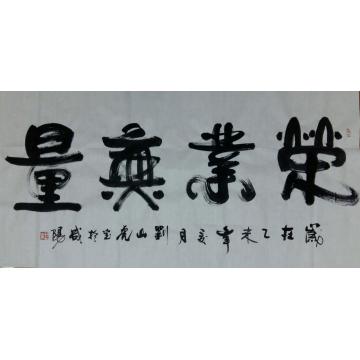 榮業無量
歲在乙未年夏月劉山虎書於咸陽